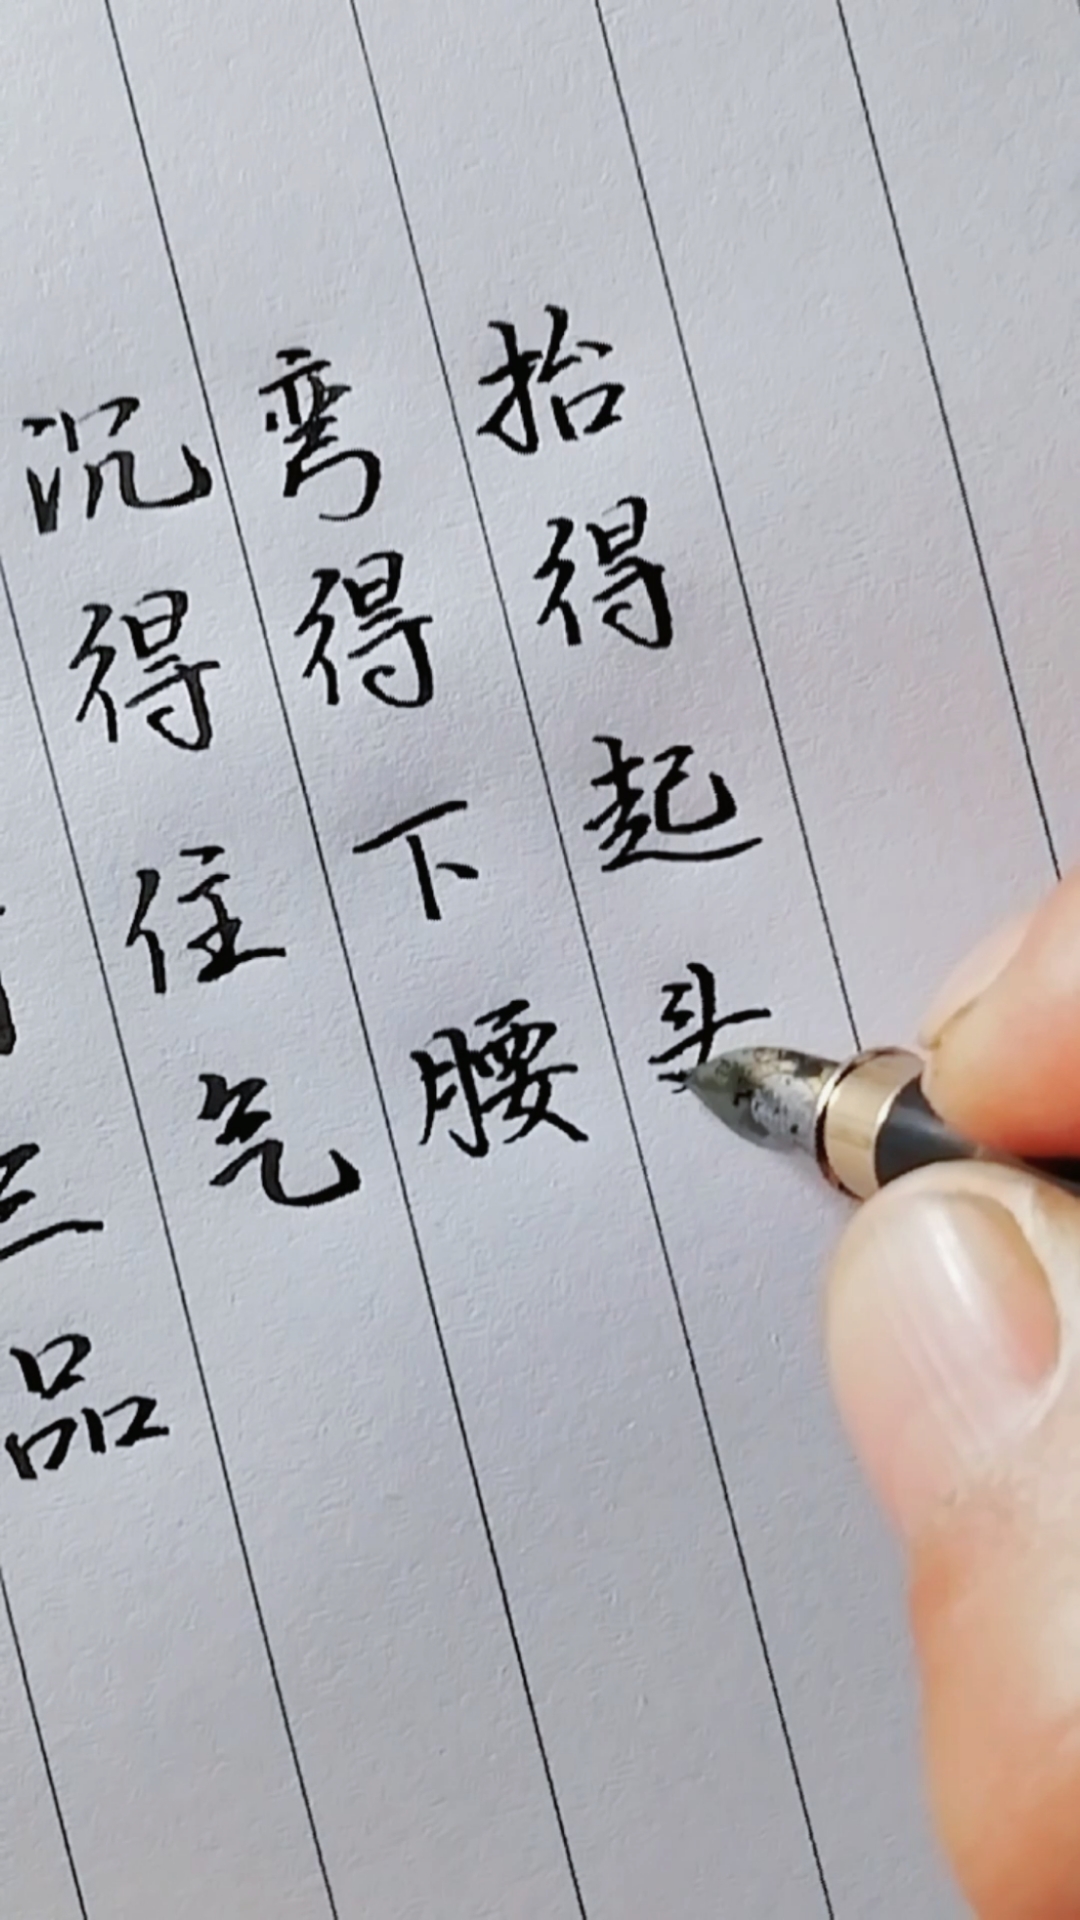 三品
沉得住气
弯得下腰
抬得起头